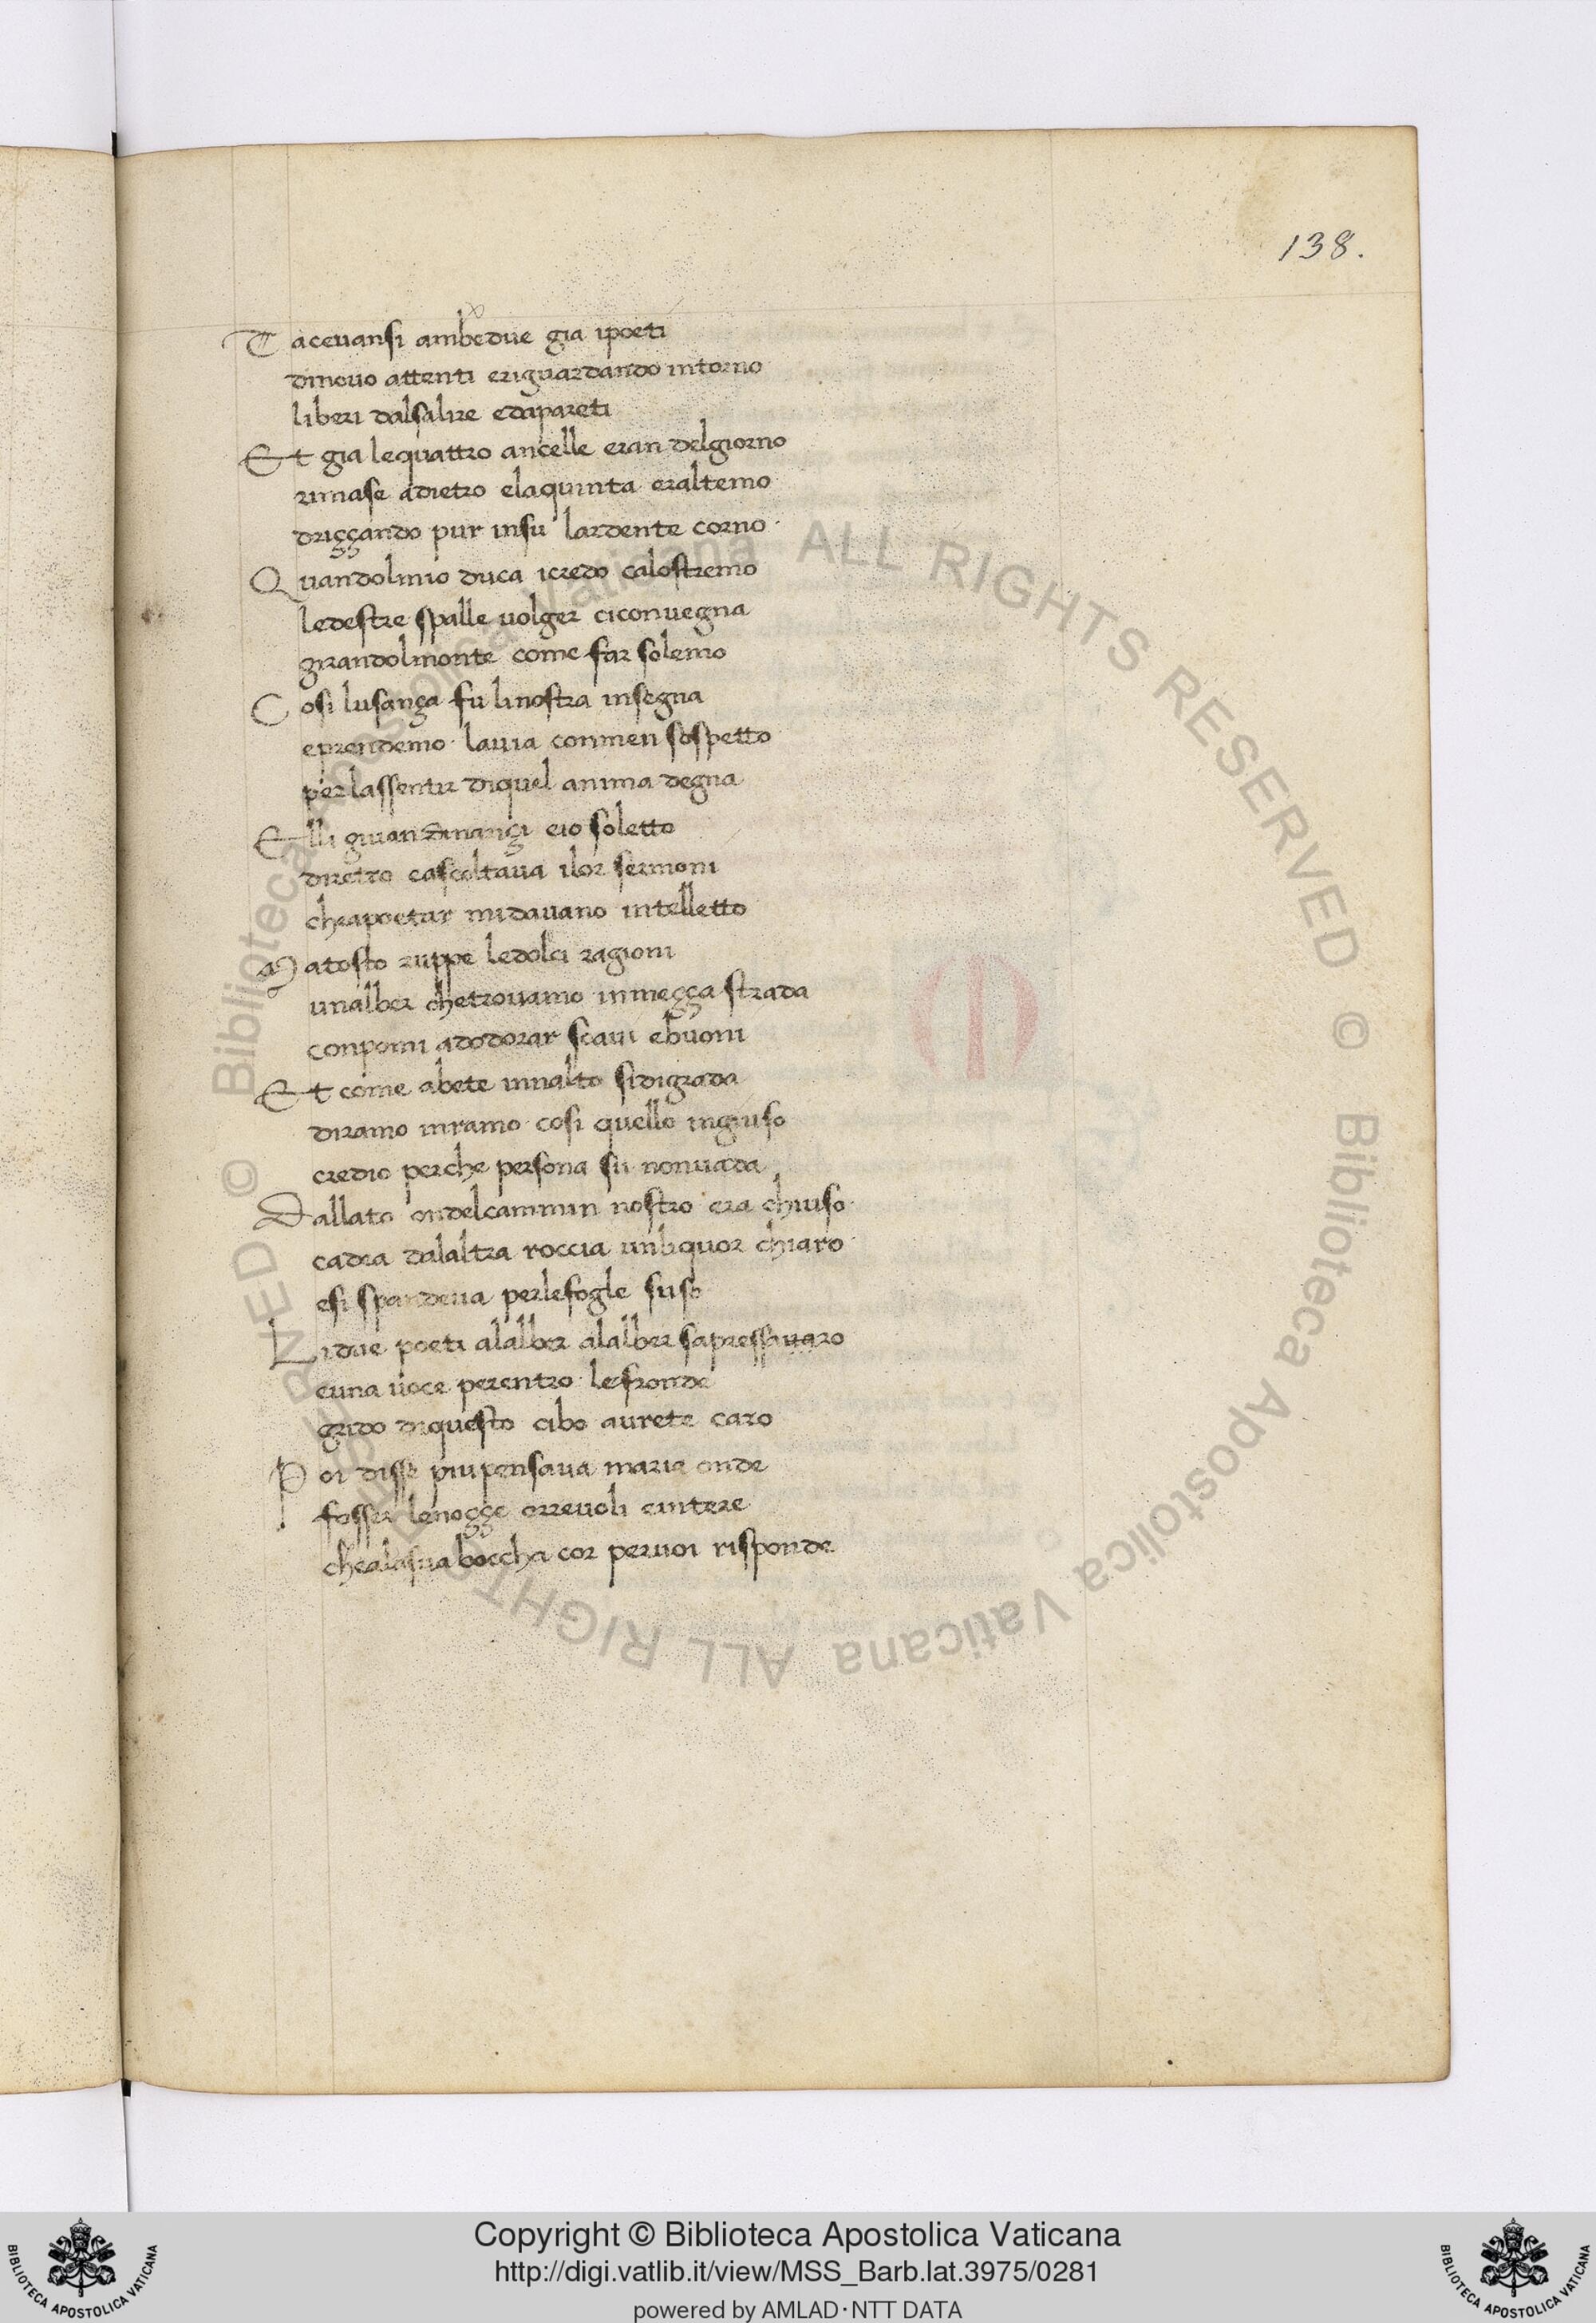 138.
Tacevansi ambedue gia ipoeti
dinovo attenti eriguardando intorno
liberi dalsalire edapareti
Et gia lequattro ancelle eran delgiorno
rimase adietro elaquinta eraltemo
driççando pur insu lardente corno
Quandolmio duca icredo calostremo
ledestre spalle volger ciconvegna
girandolmonte come far solemo
Cosi lusança fu linostra insegna
eprendemo lavia conmen sospetto
perlassentir diquel anima degna
Elli givan dinançi eio soletto
diretro eascoltava ilor sermoni
cheapoetar midavano intelletto
Matosto ruppe ledolci ragioni
unalber chetrovamo inmeçça strada
conpomi adodorar soavi ebuoni
Et come abete innalto sidigrada
diramo inramo cosi quello ingiuso
credio perche persona su nonvada
Dallato ondelcammin nostro era chiuso
cadea dalaltra roccia unliquor chiaro
esi spandeva perlefogle suso
Lidue poeti alalber alalber sapressavaro
euna voce perentro lefronde
grido diquesto cibo avrete caro
Poi disse piupensava maria onde
fosser lenoççe orrevoli eintere
chealasua boccha cor pervoi risponde
© Biblioteca Apostolica Vaticana ALL RIGHTS RESERVED © Biblioteca Apostolica Vaticana ALL RIGHTS RESERVED
BIBLIOTECA APOSTOLICA VATICANA
Copyright © Biblioteca Apostolica Vaticana
http://digi.vatlib.it/view/MSS_Barb.lat.3975/0281
powered by AMLAD·NTT DATA
BIBLIOTECA APOSTOLICA VATICANA